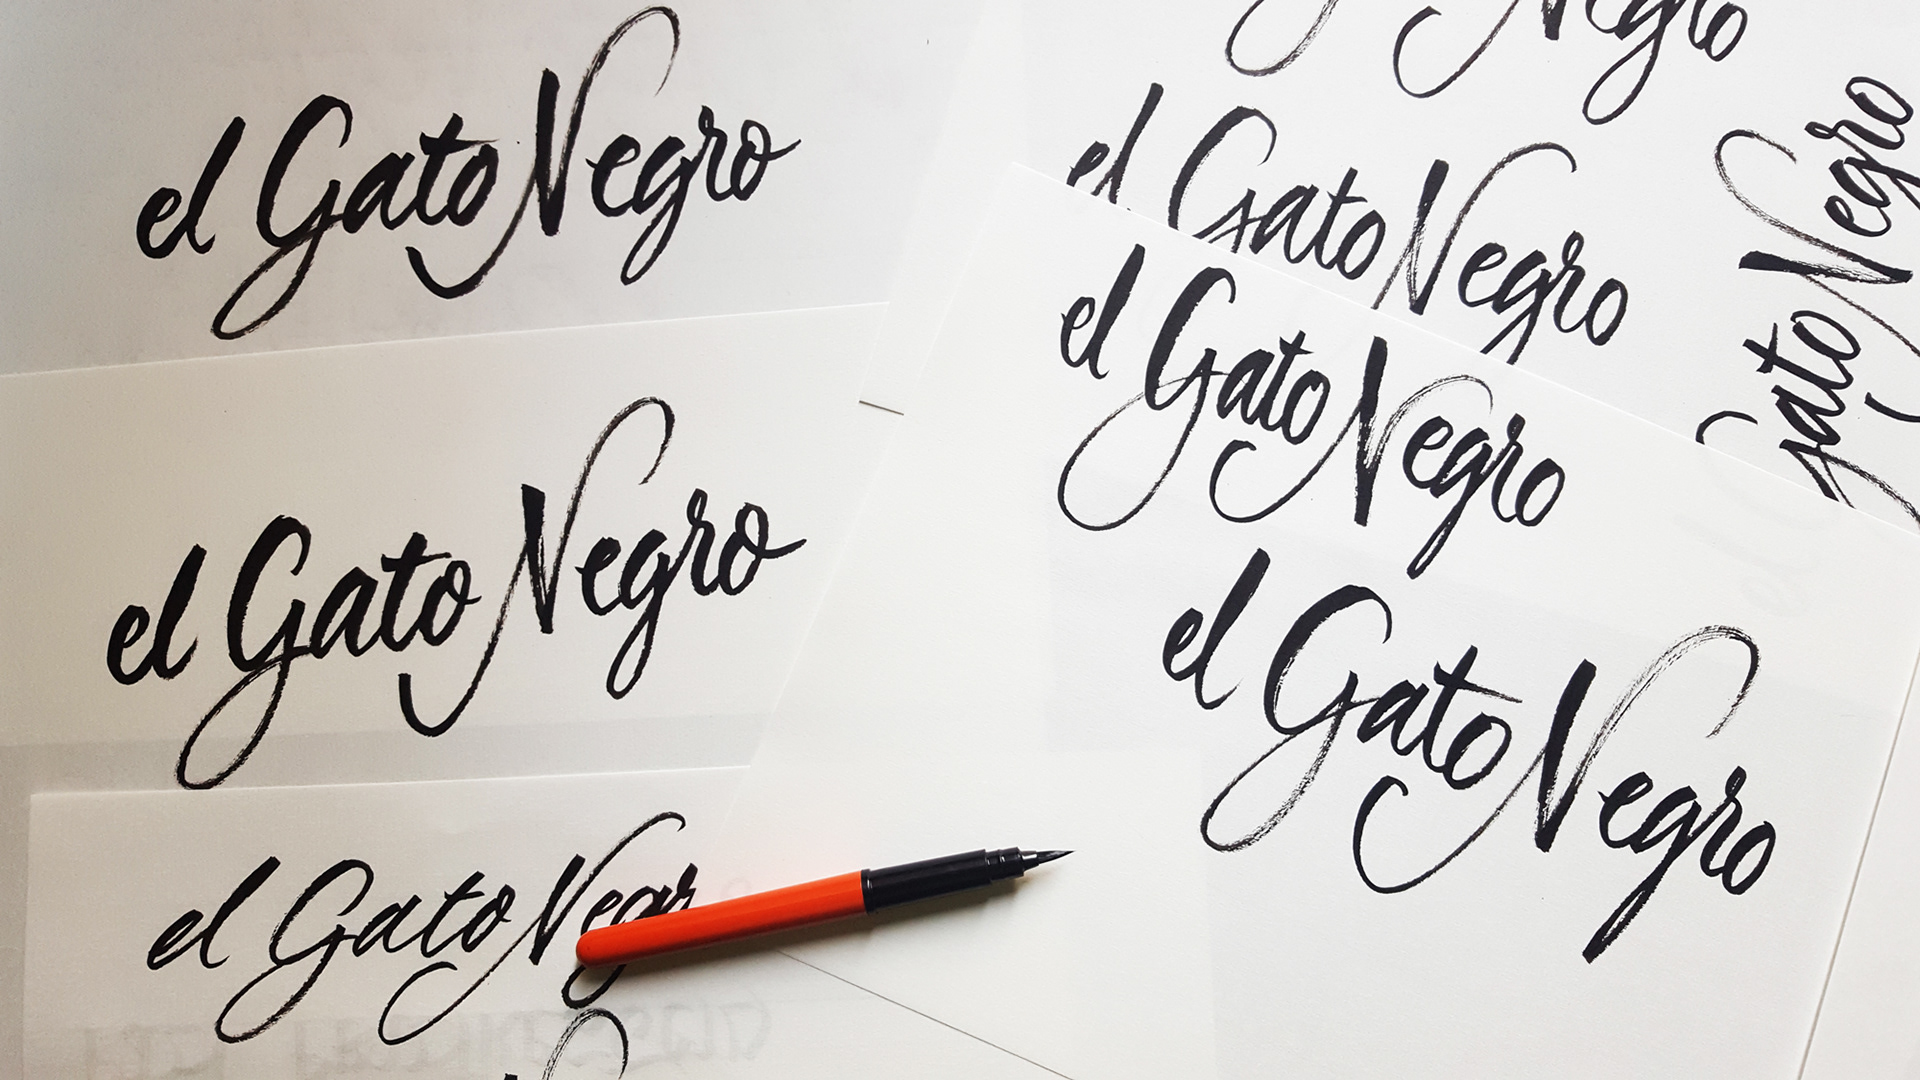 el Gato Negro
el Gato Negro
el Gato Negr
Negro
el Gato Negro
el Gato Negro
el Gato Negro
Gato Negro